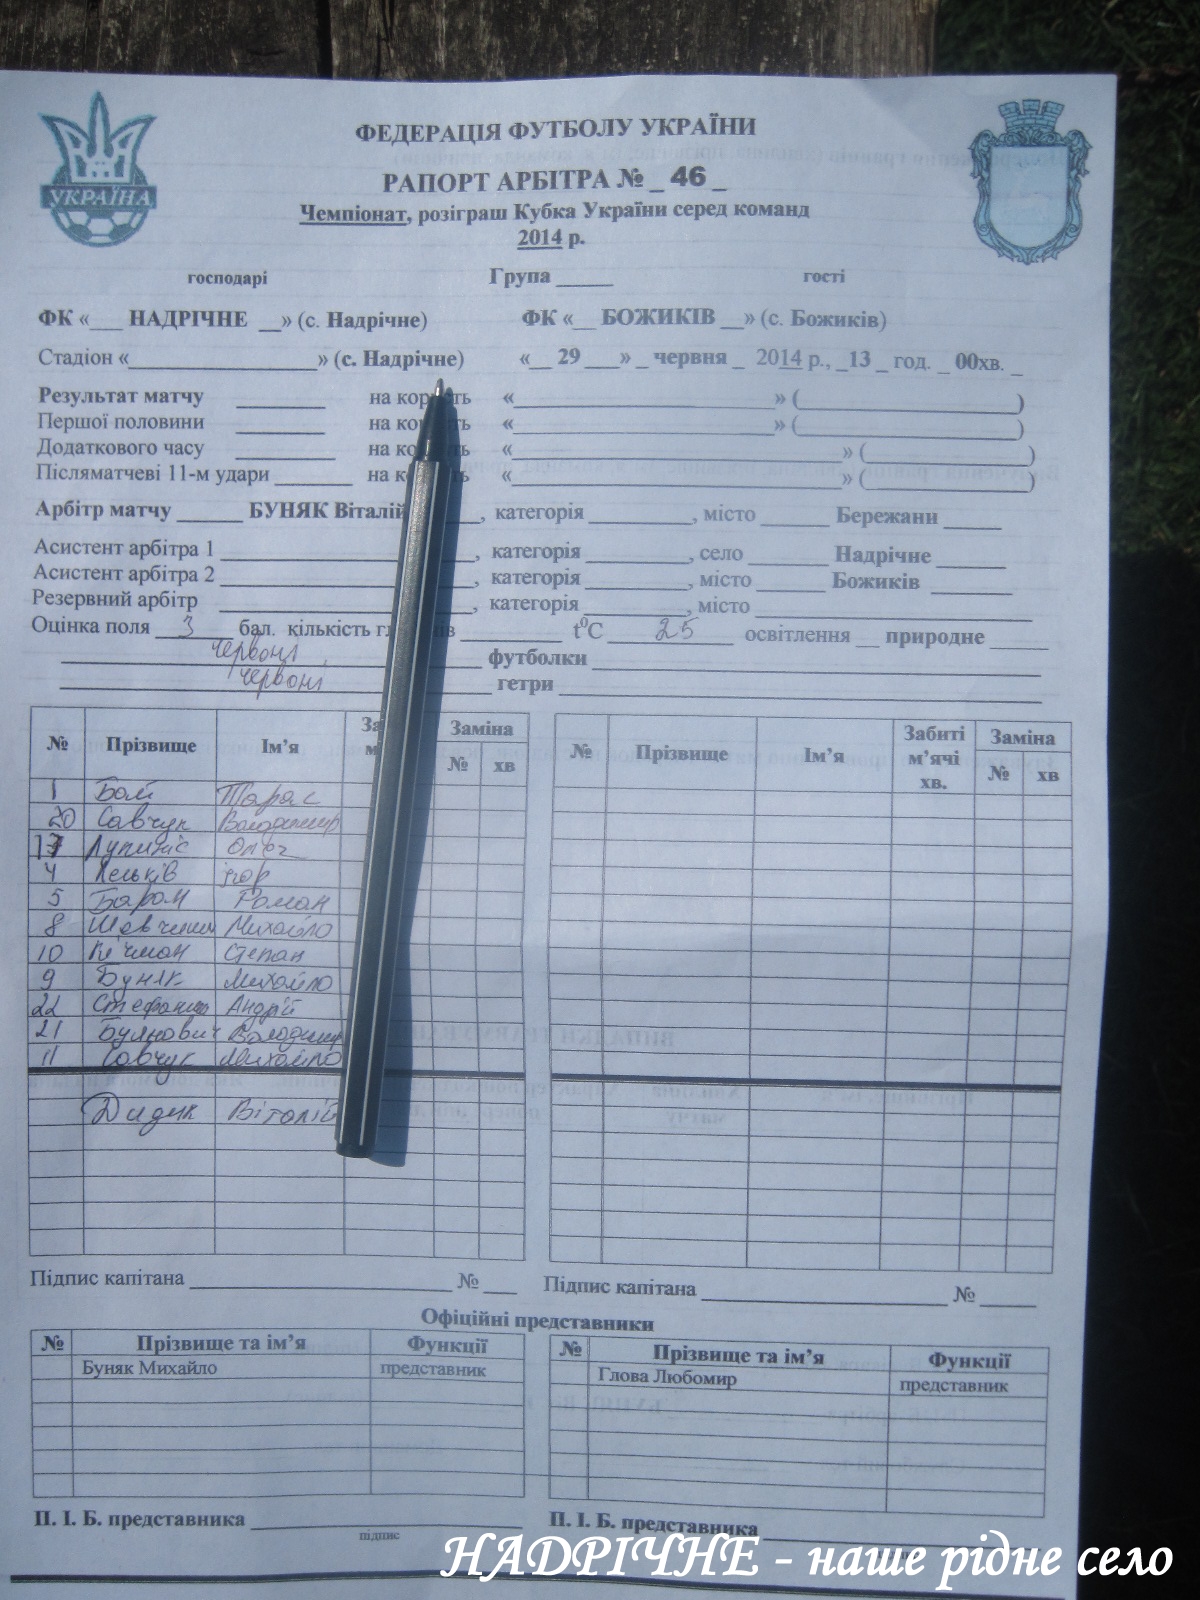 УКРАЇНА
ФЕДЕРАЦІЯ ФУТБОЛУ УКРАЇНИ
РАПОРТ АРБІТРА № _ 46 _
Чемпіонат, розіграш Кубка України серед команд
2014 р.
господарі Група _____ гості
ФК «___ НАДРІЧНЕ __» (с. Надрічне) ФК «__ БОЖИКІВ __» (с. Божиків)
Стадіон «_________________» (с. Надрічне) «__ 29 ___» _ червня _ 2014 р., _13 _ год. _ 00хв. _
Результат матчу ________ на користь «________________________» (____________________)
Першої половини ________ на користь «________________________» (____________________)
Додаткового часу _________ на користь «______________________________» (_______________)
Післяматчеві 11-м удари _______ на користь «______________________________» (_______________)
Арбітр матчу ______ БУНЯК Віталій ___, категорія _________, місто ______ Бережани _____
Асистент арбітра 1 _______________________, категорія _________, село _______ Надрічне ______
Асистент арбітра 2 _______________________, категорія _________, місто _______ Божиків _______
Резервний арбітр _______________________, категорія _________, місто _______________________
Оцінка поля __3__ бал. кількість _________ t⁰C ___25___ освітлення __ природне _____
червоні футболки
червоні гетри
№ Прізвище Ім’я Заміна № Прізвище Ім’я Забиті м’ячі хв. Заміна
№ хв № хв
1 Бой Тарас
20 Савчук Володимир
17 Олег
4 Ігор
5 Барон Роман
8 Михайло
10 Кічман Степан
9 Буняк Михайло
22 Андрій
21 Володимир
11 Савчук Михайло
Дидик Віталій
Підпис капітана _________________________ № ___ Підпис капітана _______________________ № _____
Офіційні представники
№ Прізвище та ім’я Функції № Прізвище та ім’я Функції
Буняк Михайло представник Глова Любомир представник
П. І. Б. представника _________________________ П. І. Б. представника _________________________
підпис
НАДРІЧНЕ - наше рідне село